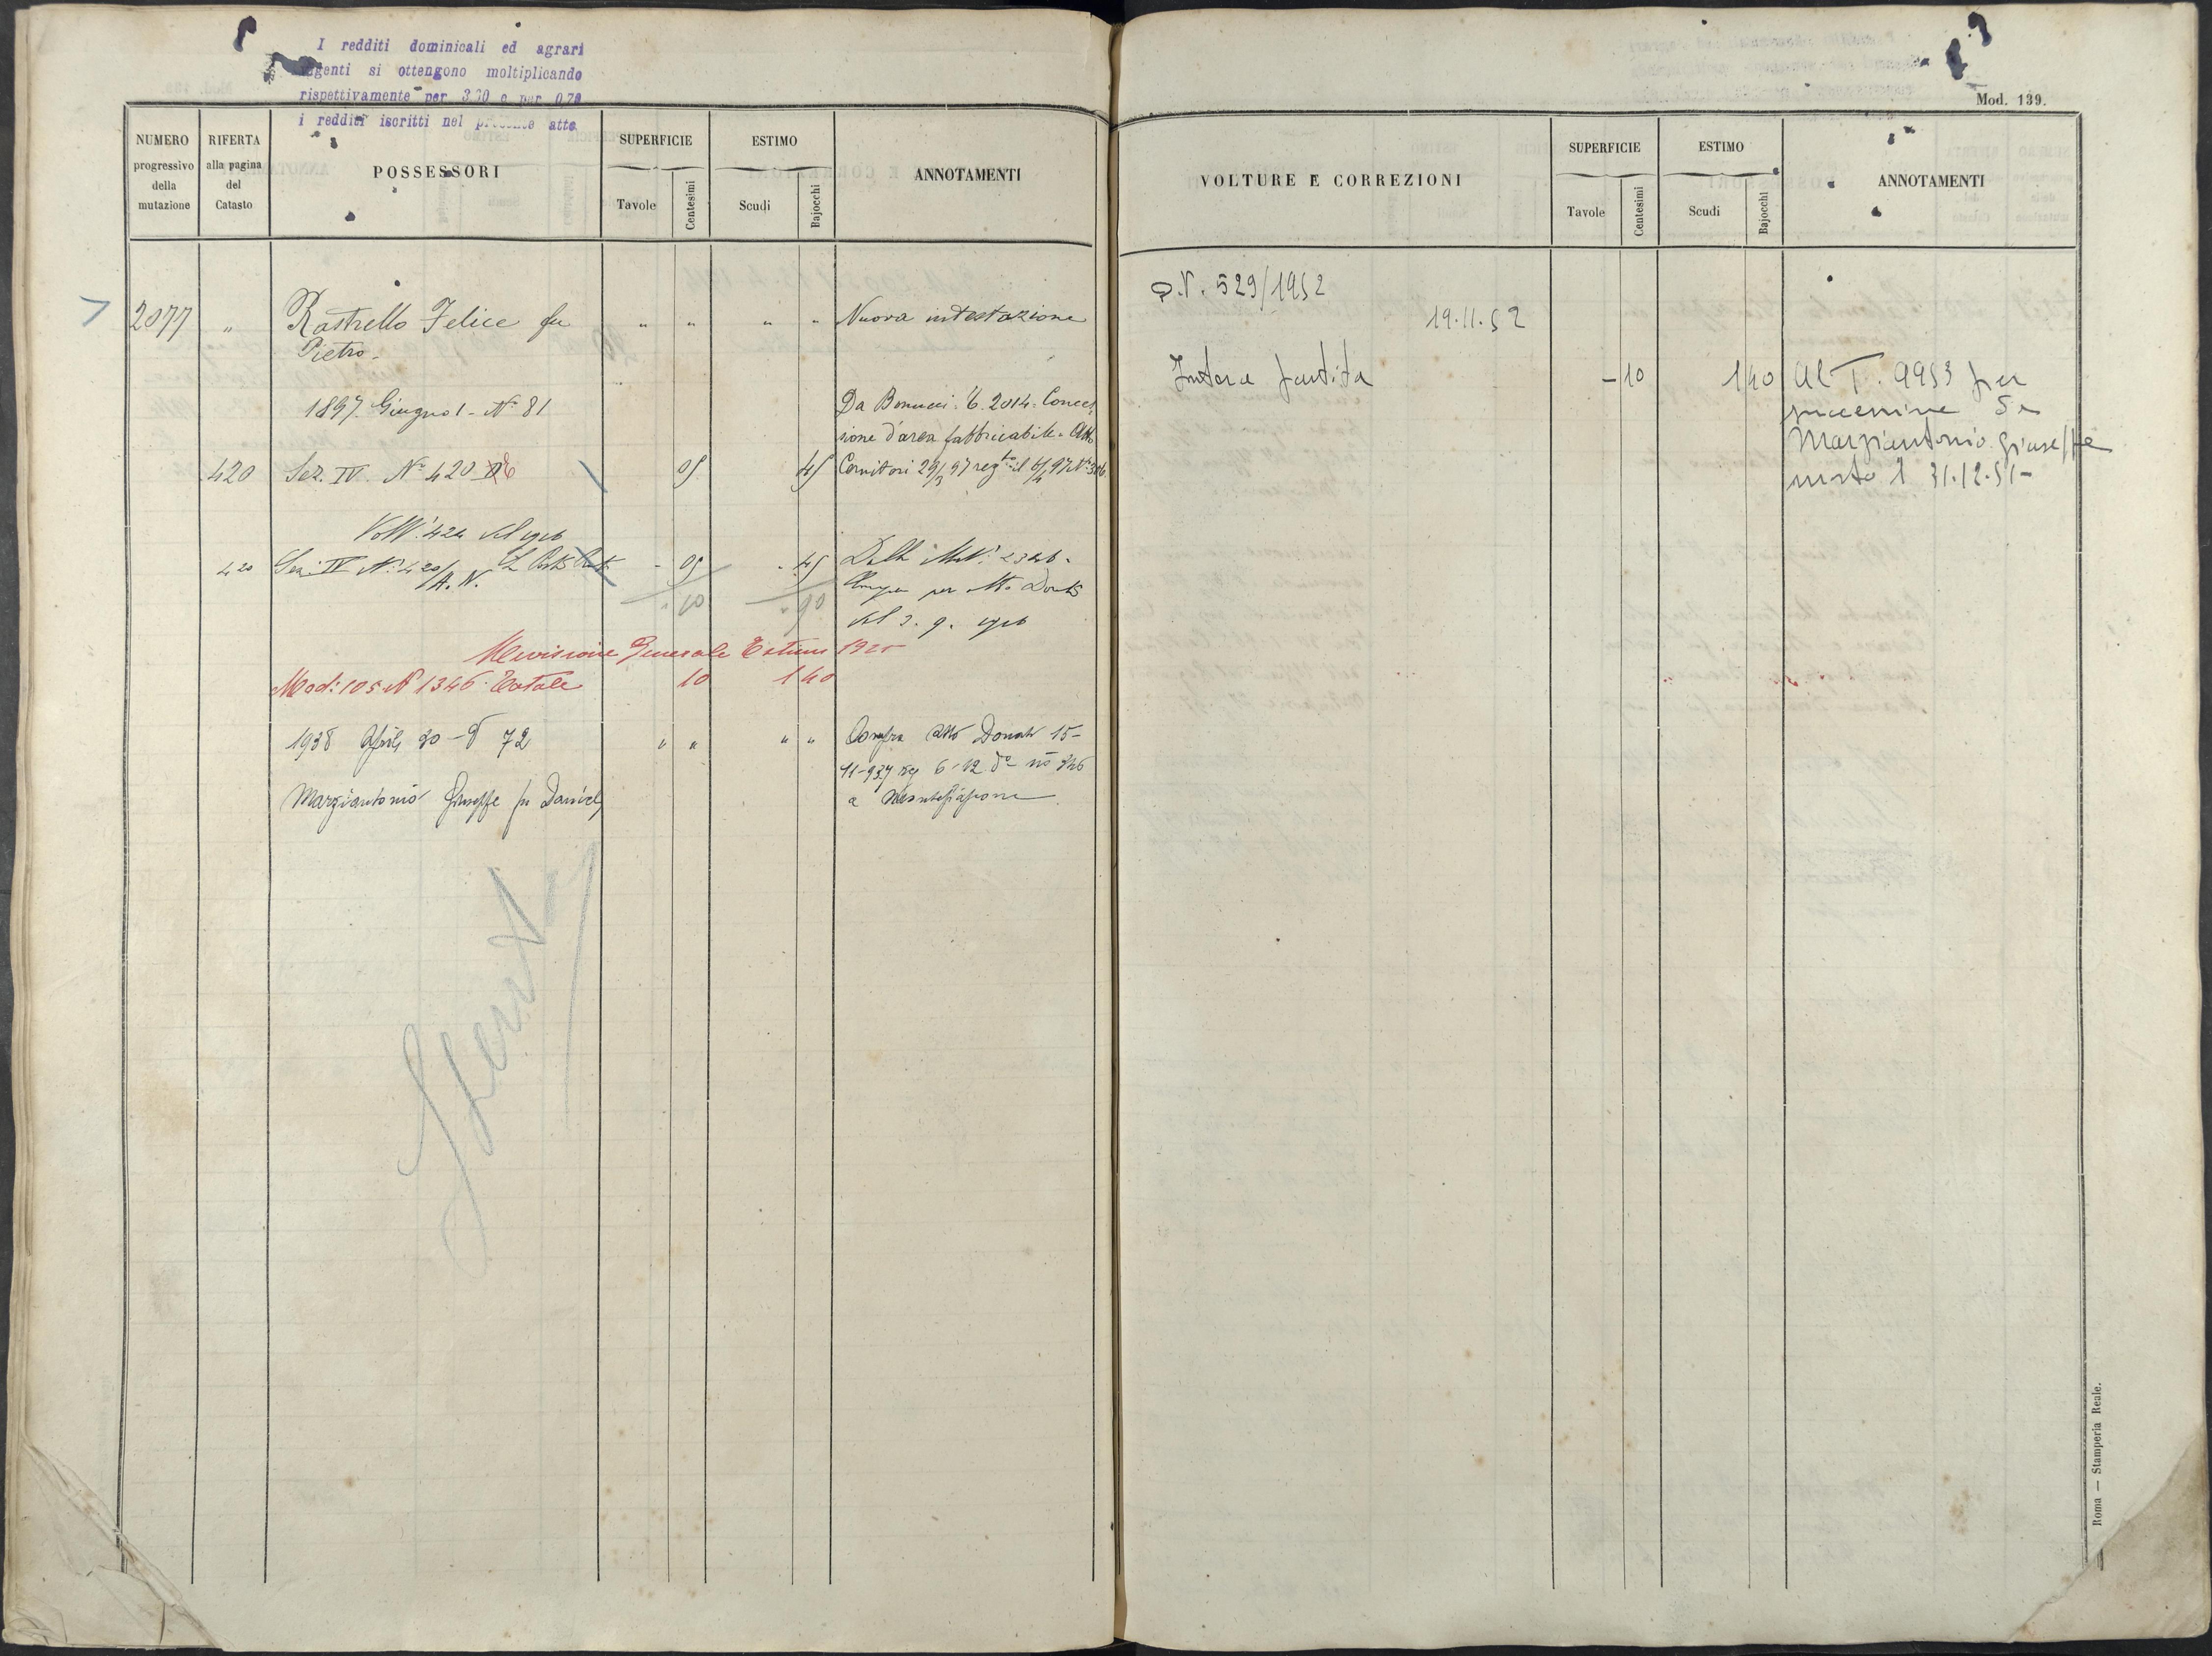 I redditi dominicali ed agrari
si ottengono moltiplicando
rispettivamente per 3.20 e per 0.70
i redditi iscritti nel presente atto
Mod. 139.
NUMERO progressivo della mutazione
RIFERTA alla pagina del Catasto
POSSESSORI
SUPERFICIE
Tavole
Centesimi
ESTIMO
Scudi
Bajocchi
ANNOTAMENTI
2077 " Rastrello Felice fu " " " " Nuova intestazione
Pietro -
1897. Giugno 1 - N° 81 Da Bonucci. T. 2014. Conces
sione d'area fabbricabile. Atto
420 Sez. IV. N° 420 05 45 29/3 97 reg.to il
del 1916
420 Sez. IV N. 420/A. N. - 05 - 45
" 10 " 90
del 3. 9. 1916
Revisione Generale Estimi 1925
Mod: 105 N 1346 Totale 10 1 40
1938 Aprile 30 - N 72 " " " " Compra atto Donati 15-
11-937 reg 6-12 do no 346
Marziantonio Giuseppe fu Daniele
a
VOLTURE E CORREZIONI
SUPERFICIE
Tavole
Centesimi
ESTIMO
Scudi
Bajocchi
ANNOTAMENTI
N. 529/1952
19.11.52
Intera partita - 10 1 40 Al T. 9953 per
successione di
Marziantonio Giuseppe
morto il 31.12.51-
Roma — Stamperia Reale.